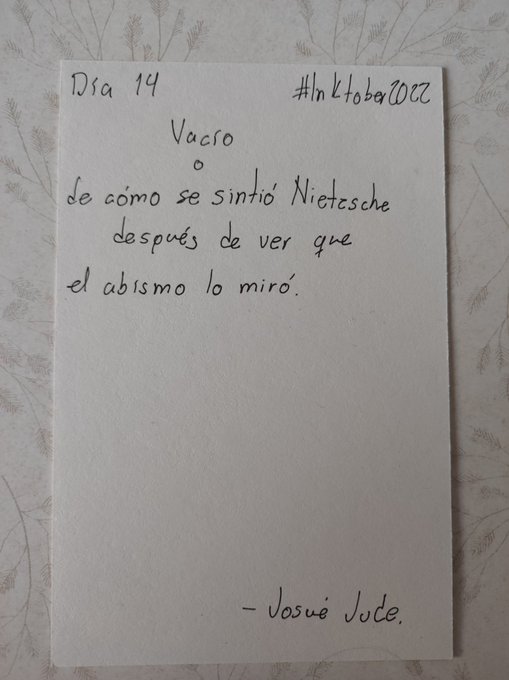 Día 14
#InKtober2022
Vacío
o
de cómo se sintió Nietzsche
después de ver que
el abismo lo miró.
- Josué Jude.